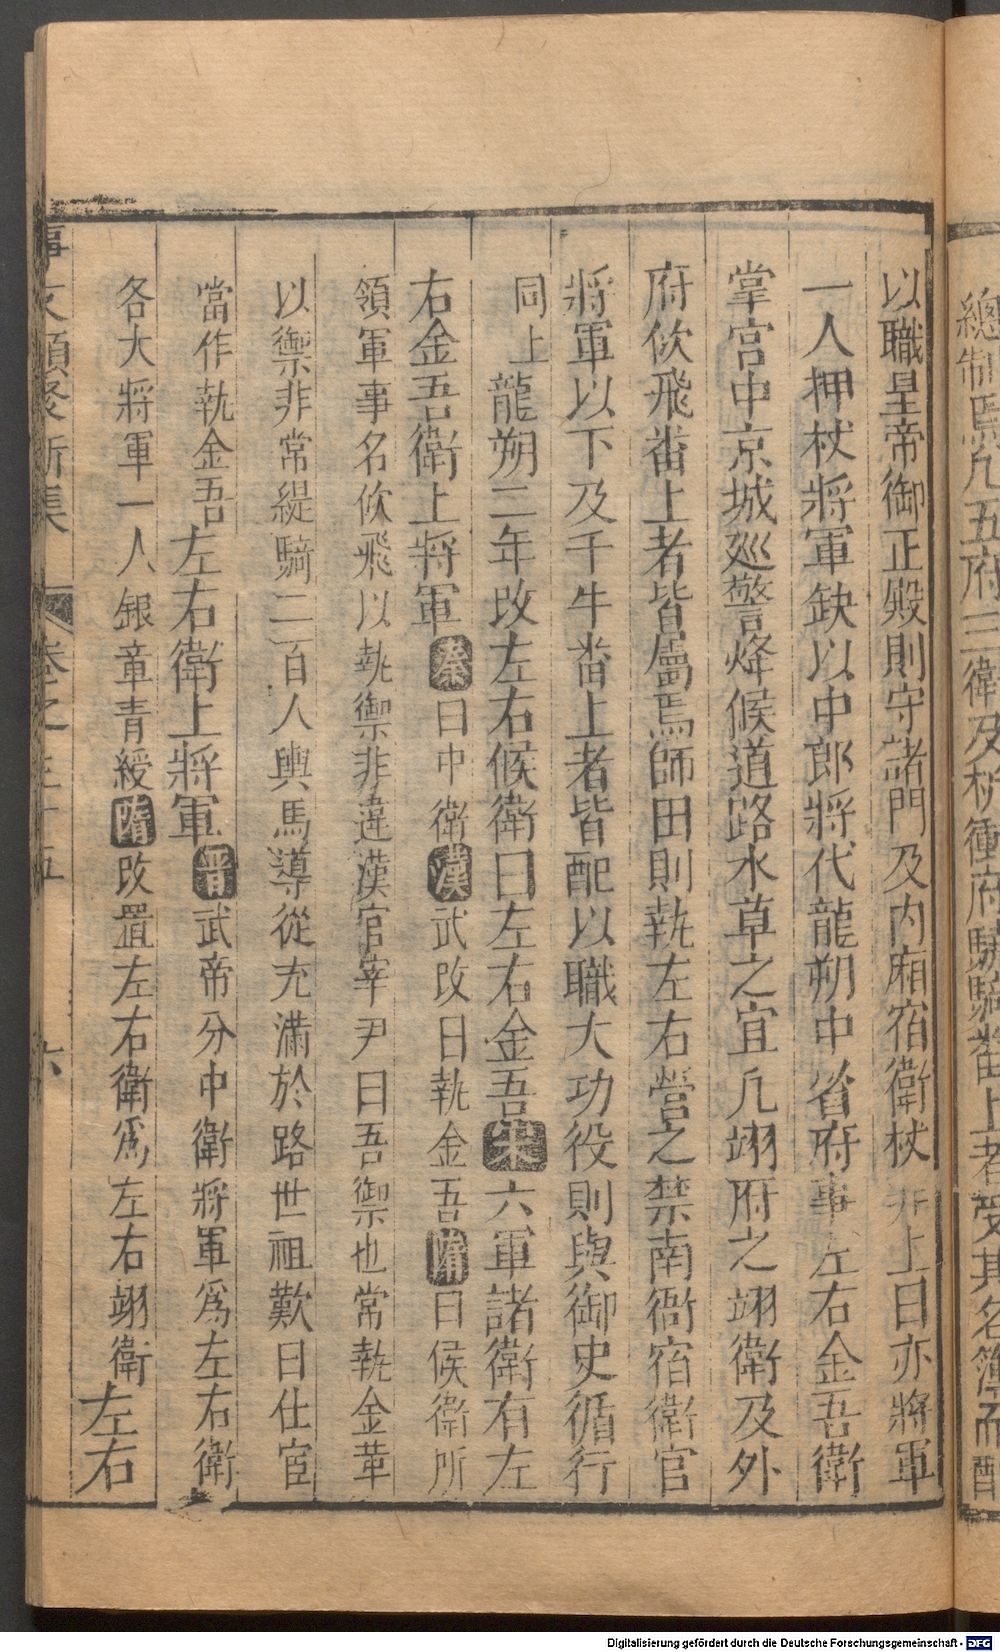 總制馬凡五府三衛及杖衝府驍騎畨上者受其名簿而配
以職皇帝御正殿則守諸門及内廂宿衛杖非上日亦將軍
一人押杖將軍缺以中郎將代龍朔中省府事左右金吾衛
掌宫中京城廵警烽候道路水草之宜凡翊府之翊衛及外
府佽飛畨上者皆屬焉師田則執左右營之禁南衙宿衛官
將軍以下及千牛畨上者皆配以職大功役則與御史循行
同上龍朔二年改左右候衛曰左右金吾宋六軍諸衛有左
右金吾衛上將軍秦曰中衛漢武改曰執金吾隋曰候衛所
領軍事名佽飛以執禦非違漢官宰尹曰吾禦也常執金革
以禦非常緹騎二百人輿馬導從充滿於路世祖歎曰仕宦
當作執金吾左右衛上將軍晋武帝分中衛將軍爲左右衛
各大將軍一人銀章青綬隋改置左右衛爲左右翊衛左右
事文類聚新集 卷之三十五 六
Digitalisierung gefördert durch die Deutsche Forschungsgemeinschaft - DFG